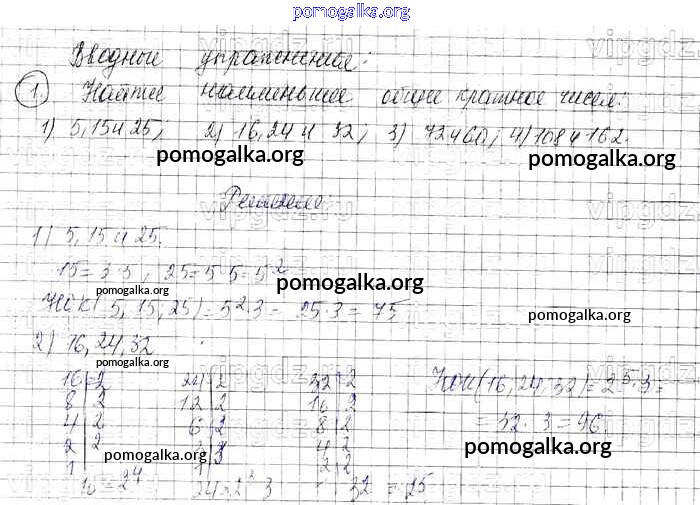 pomogalka.org
Вводные упражнения:
1. Найти наименьшее общее кратное чисел:
1) 5, 15 и 25; 2) 16, 24 и 32; 3) 72 и 60; 4) 108 и 162.
pomogalka.org pomogalka.org
Решение:
1) 5, 15 и 25.
15 = 3·5, 25 = 5·5 = 5²
pomogalka.org
pomogalka.org
НОК(5, 15, 25) = 5²·3 = 25·3 = 75
pomogalka.org
2) 16, 24, 32
pomogalka.org
16|2 24|2 32|2 НОК(16, 24, 32) = 2⁵·3 =
8|2 12|2 16|2
4|2 6|2 8|2 = 32·3 = 96.
2|2 3|3 4|2 pomogalka.org
pomogalka.org
1| 2|2
16 = 2⁴ 24 = 2² 3 32 = 25